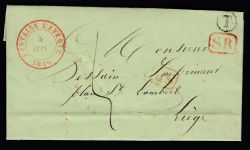 FONTAINE L'EVEQUE
4
JUIN
I
SR
Monsieur
Dessain Imprimeur
place St Lambert
Liége